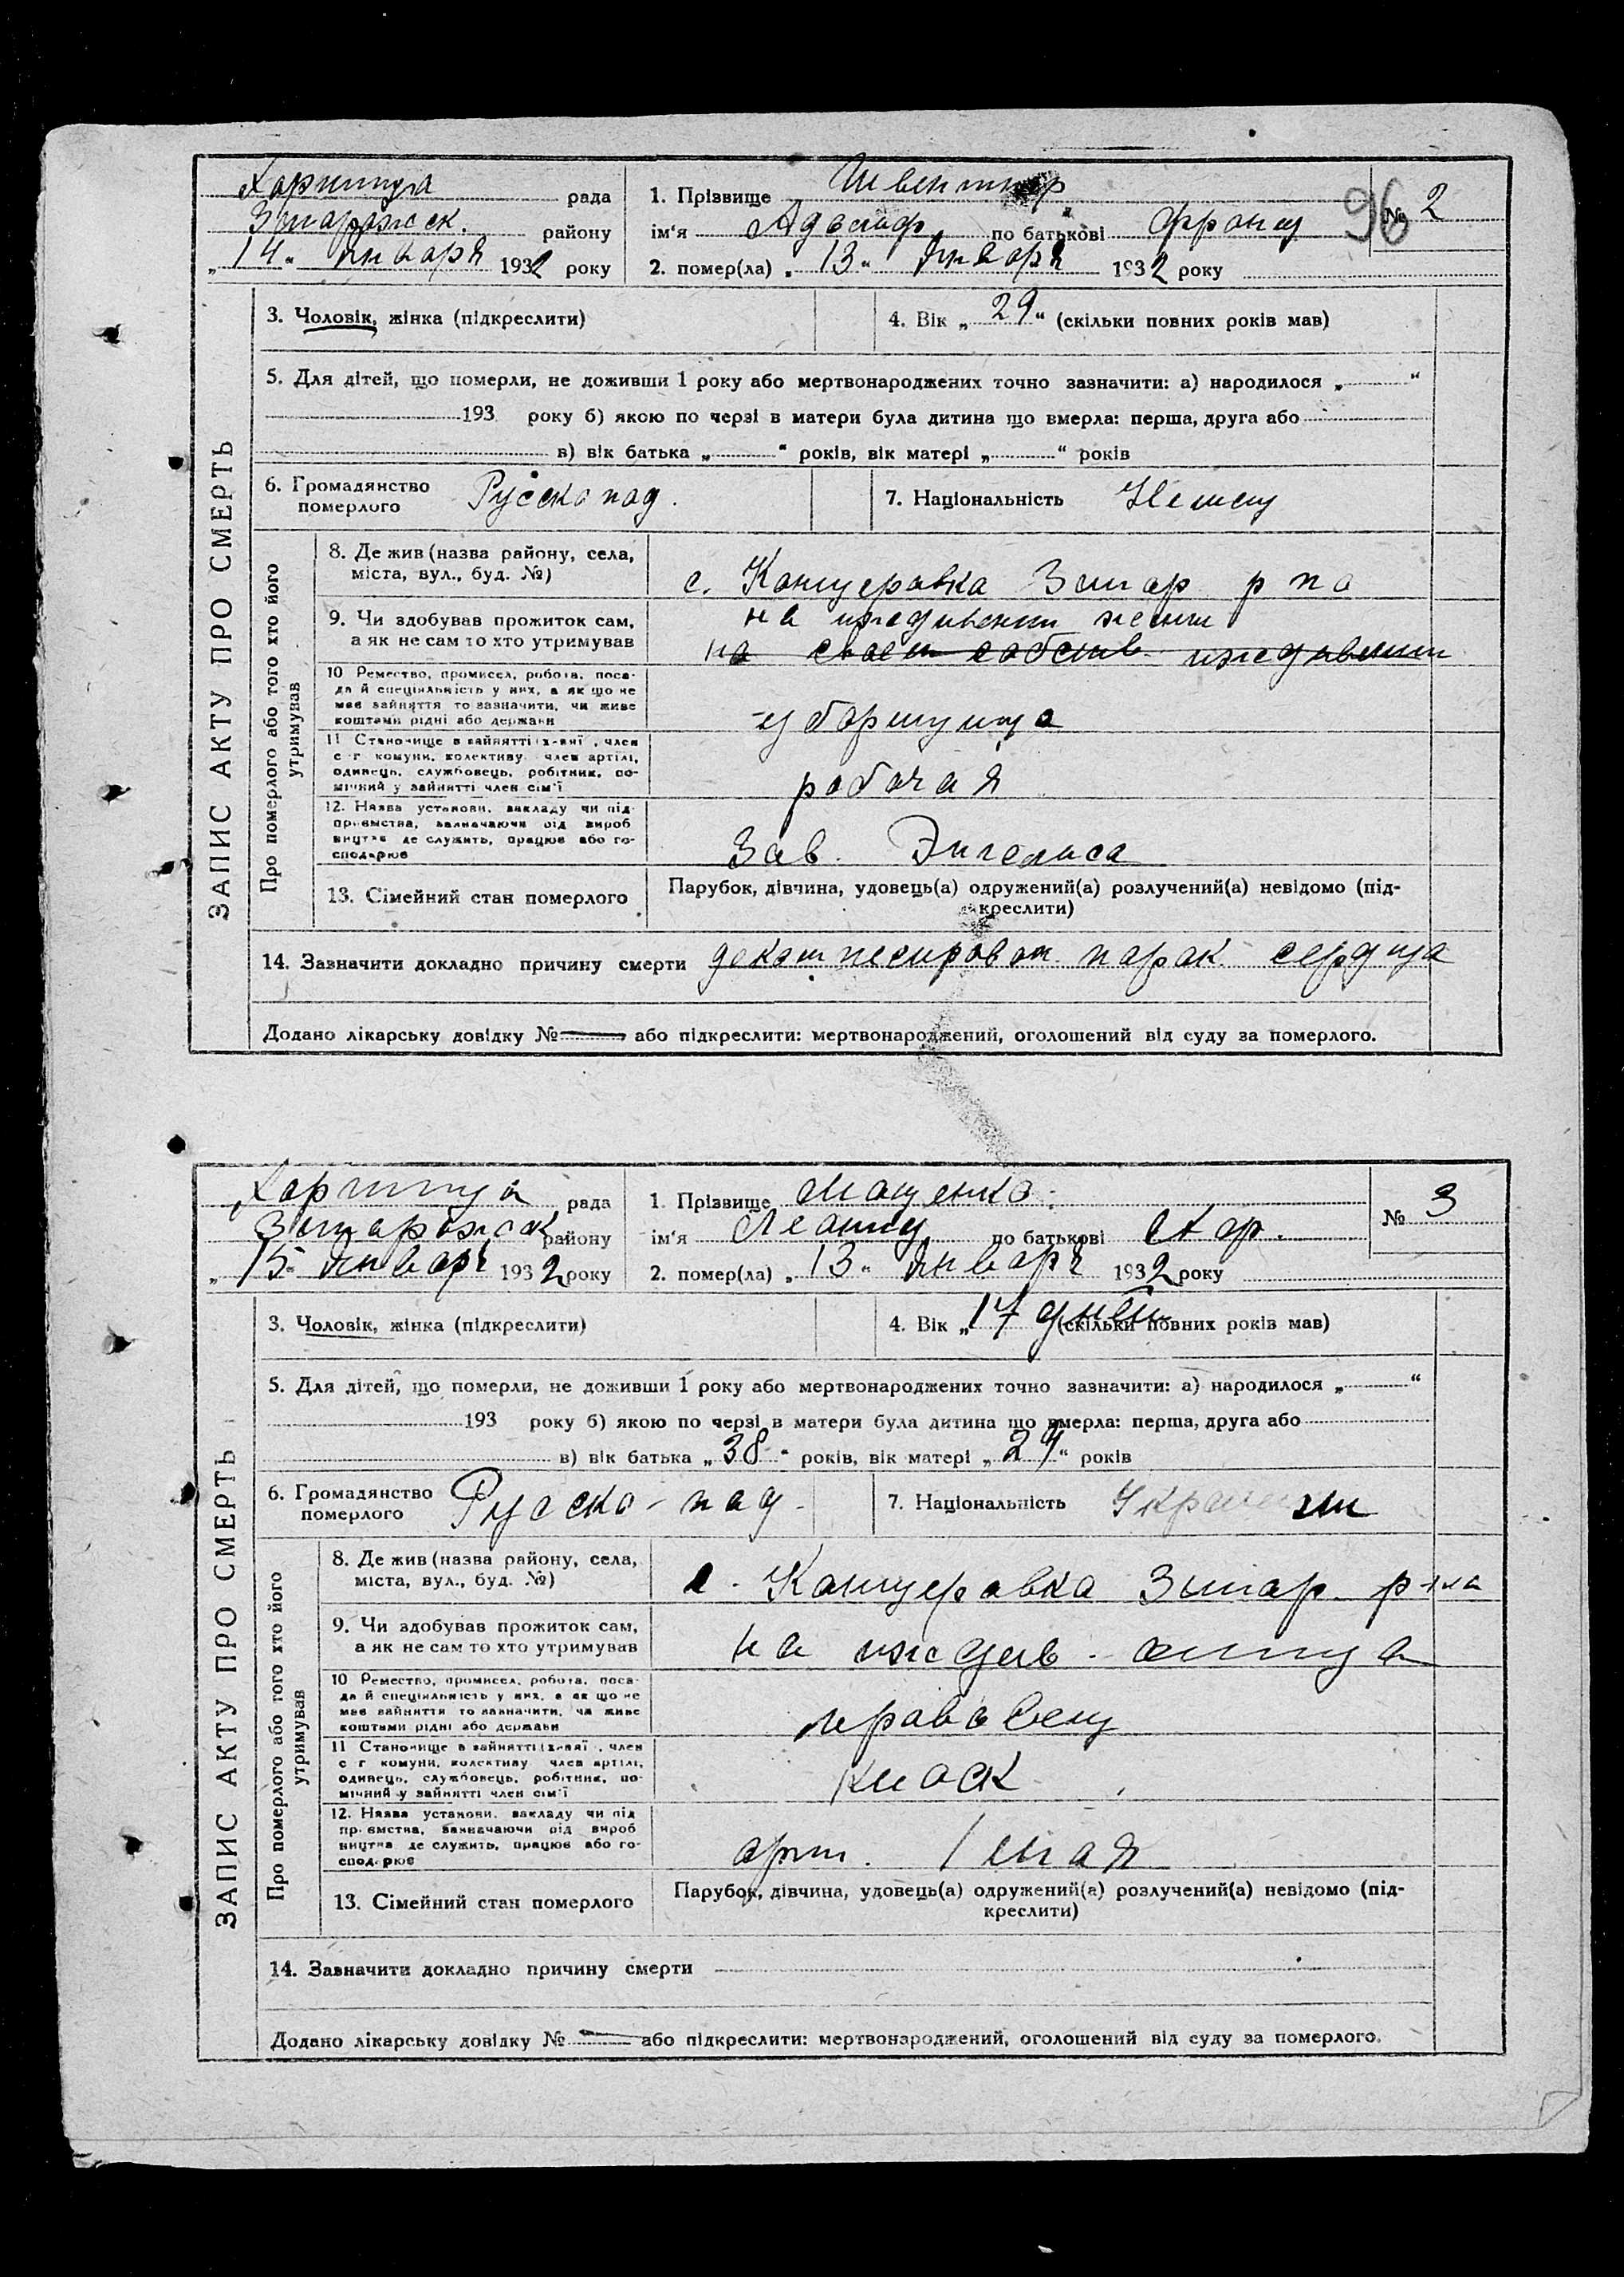 Хортица рада
Запорожск. району
„14“ Января 1932 року
1. Прізвище
ім'я Адольф по батькові Франц
2. помер(ла) „13“ Января 1932 року
96
№ 2
ЗАПИС АКТУ ПРО СМЕРТЬ
3. Чоловік, жінка (підкреслити)
4. Вік „29“ (скільки повних років мав)
5. Для дітей, що померли, не доживши 1 року або мертвонароджених точно зазначити: а) народилося „ “
193 року б) якою по черзі в матери була дитина що вмерла: перша, друга або
в) вік батька „ “ років, вік матері „ “ років
6. Громадянство
померлого
Русско под.
7. Національність Немец
Про померлого або того хто його
утримував
8. Де жив (назва району, села,
міста, вул., буд. №)
с. Канцеровка Запор р на
9. Чи здобував прожиток сам,
а як не сам то хто утримував
на иждивении жены
на своем собств иждивении
10 Ремество, промисел, робота, поса-
да й спеціяльність у них, а як що не
має зайняття то зазначити, чи живе
коштами рідні або держави
уборщица
11 Становище в зайнятті (х-вні , член
с-г комуни, колективу член артілі,
одинець, службовець, робітник, по-
мічний у зайнятті член сім'ї
рабочая
12. Назва установи, закладу чи під-
приємства, зазначаючи від вироб
ництва де служить, працює або го-
сподарює
Зав. Энгельса
13. Сімейний стан померлого
Парубок, дівчина, удовець(а) одружений(а) розлучений(а) невідомо (під-
креслити)
14. Зазначити докладно причину смерти декомпенсирован. порок сердца
Додано лікарську довідку № або підкреслити: мертвонароджений, оголошений від суду за померлого.
Хортица рада
Запорожск району
„15“ Января 1932 року
1. Прізвище Маценко
ім'я Леонид по батькові Схар.
2. помер(ла) „13“ Января 1932 року
№ 3
ЗАПИС АКТУ ПРО СМЕРТЬ
3. Чоловік, жінка (підкреслити)
4. Вік „17 дней (скільки повних років мав)
5. Для дітей, що померли, не доживши 1 року або мертвонароджених точно зазначити: а) народилося „ “
193 року б) якою по черзі в матери була дитина що вмерла: перша, друга або
в) вік батька „38“ років, вік матері „24“ років
6. Громадянство
померлого
Русско-под.
7. Національність
Про померлого або того хто його
утримував
8. Де жив (назва району, села,
міста, вул., буд. №)
с. Канцеровка Запор. р-на
9. Чи здобував прожиток сам,
а як не сам то хто утримував
на иждив. отца
10 Ремество, промисел, робота, поса-
да й спеціяльність у них, а як що не
має зайняття то зазначити, чи живе
коштами рідні або держави
продавец
11 Становище в зайнятті (х-вні , член
с г комуни, колективу член артілі,
одинець, службовець, робітник, по-
мічний у зайнятті член сім'ї
киоск
12. Назва установи, закладу чи під
приємства, зазначаючи від вироб
ництва де служить, працює або го-
сподарює
арт. 1 мая
13. Сімейний стан померлого
Парубок, дівчина, удовець(а) одружений(а) розлучений(а) невідомо (під-
креслити)
14. Зазначити докладно причину смерти
Додано лікарську довідку № або підкреслити: мертвонароджений, оголошений від суду за померлого.